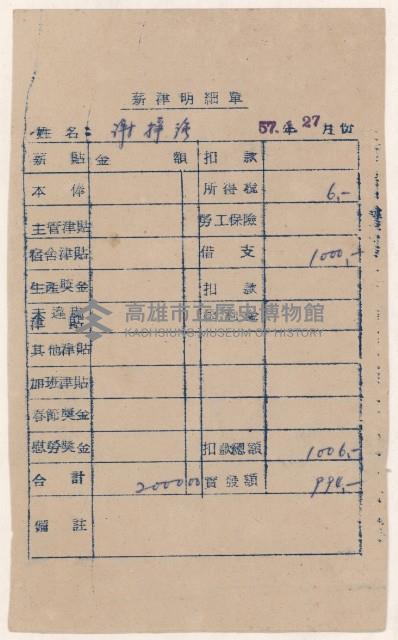 薪津明細單
姓名： 謝 57.年27月份
薪貼 金額 扣款
本俸 所得稅 6.-
主管津貼 勞工保險
宿舍津貼 借支 1000.-
生產獎金 扣款
津貼
高雄市立歷史博物館
KAOHSIUNG MUSEUM OF HISTORY
其他津貼
加班津貼
春節獎金
慰勞獎金 扣款總額 1006.-
合計 200000 實發額 994.-
備註